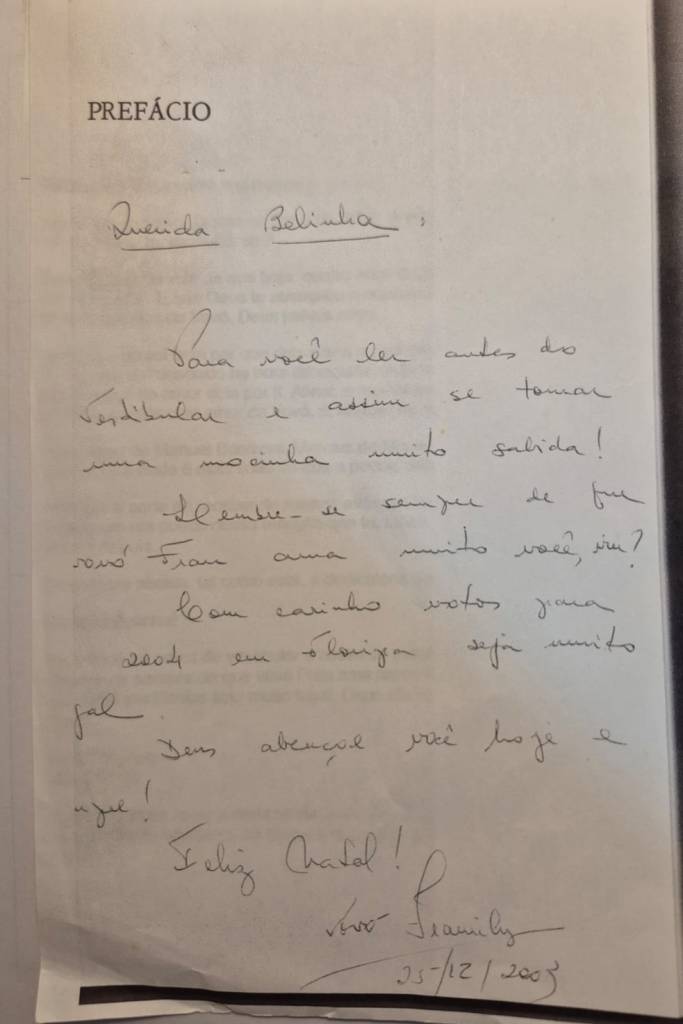 PREFÁCIO
Querida Belinha,
Para você ler antes do
vestibular e assim se tornar
uma mocinha muito sabida!
Lembre-se sempre de que
vovó Fran ama muito você, viu?
Com carinho votos para
2004 em Floripa seja muito
gal.
Deus abençoe você hoje e
Feliz Natal!
Vovó
25/12/2003